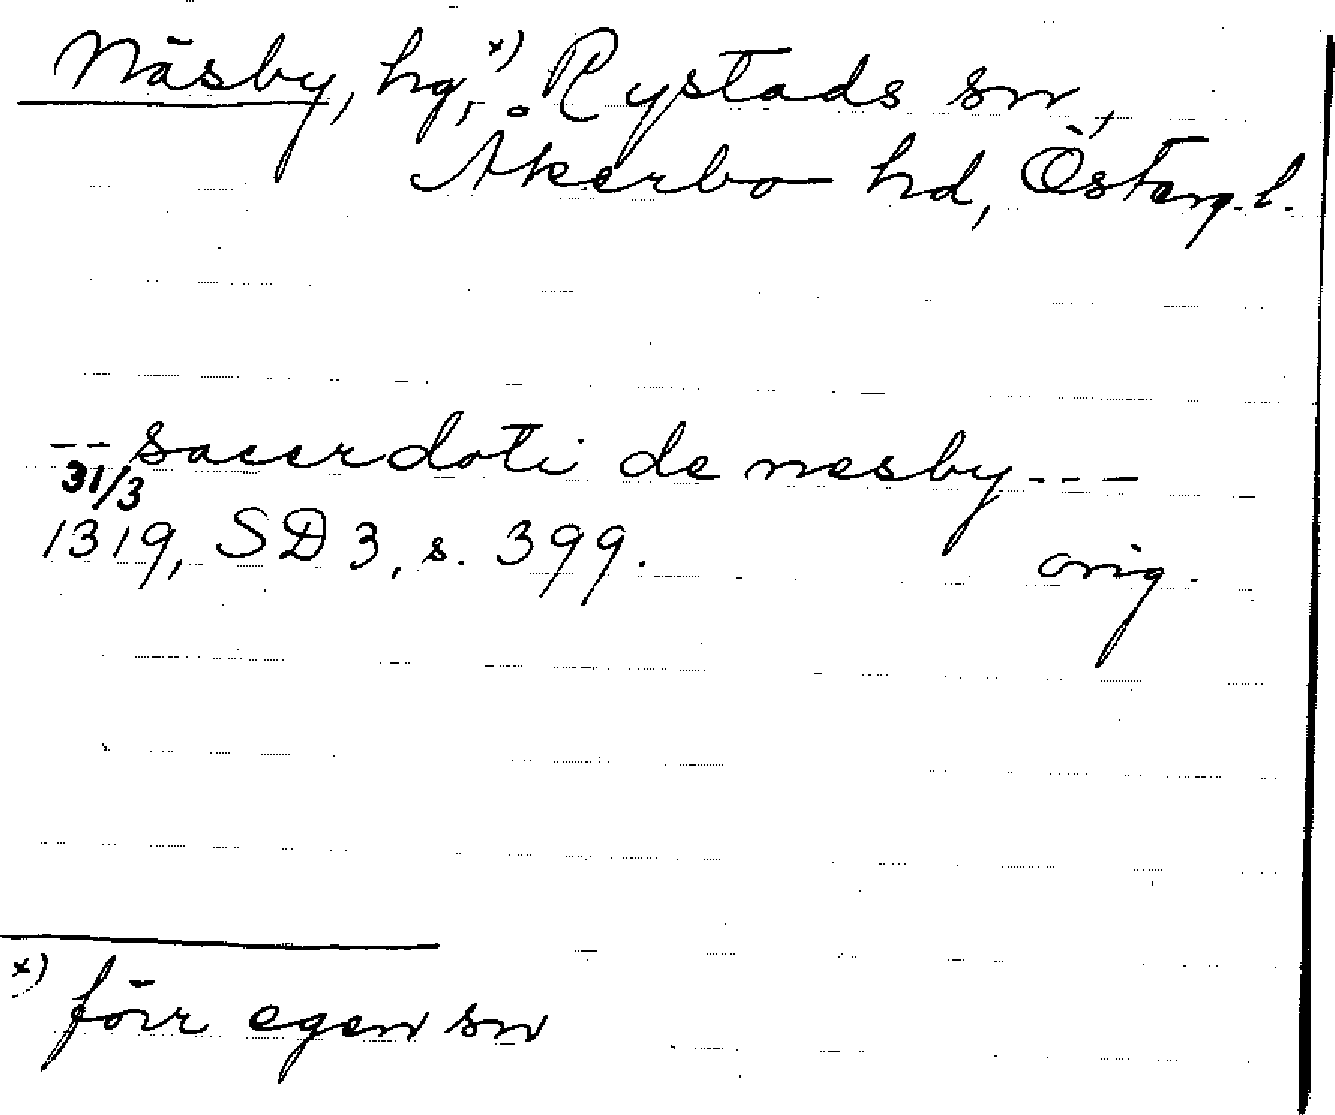 Näsby, hg,ˣ⁾ Rystads sn,
Åkerbo hd, Österg.l.
--- sacerdoti de nesby ---
31/3
1319, SD 3, s. 399. orig.
x) förr egen sn